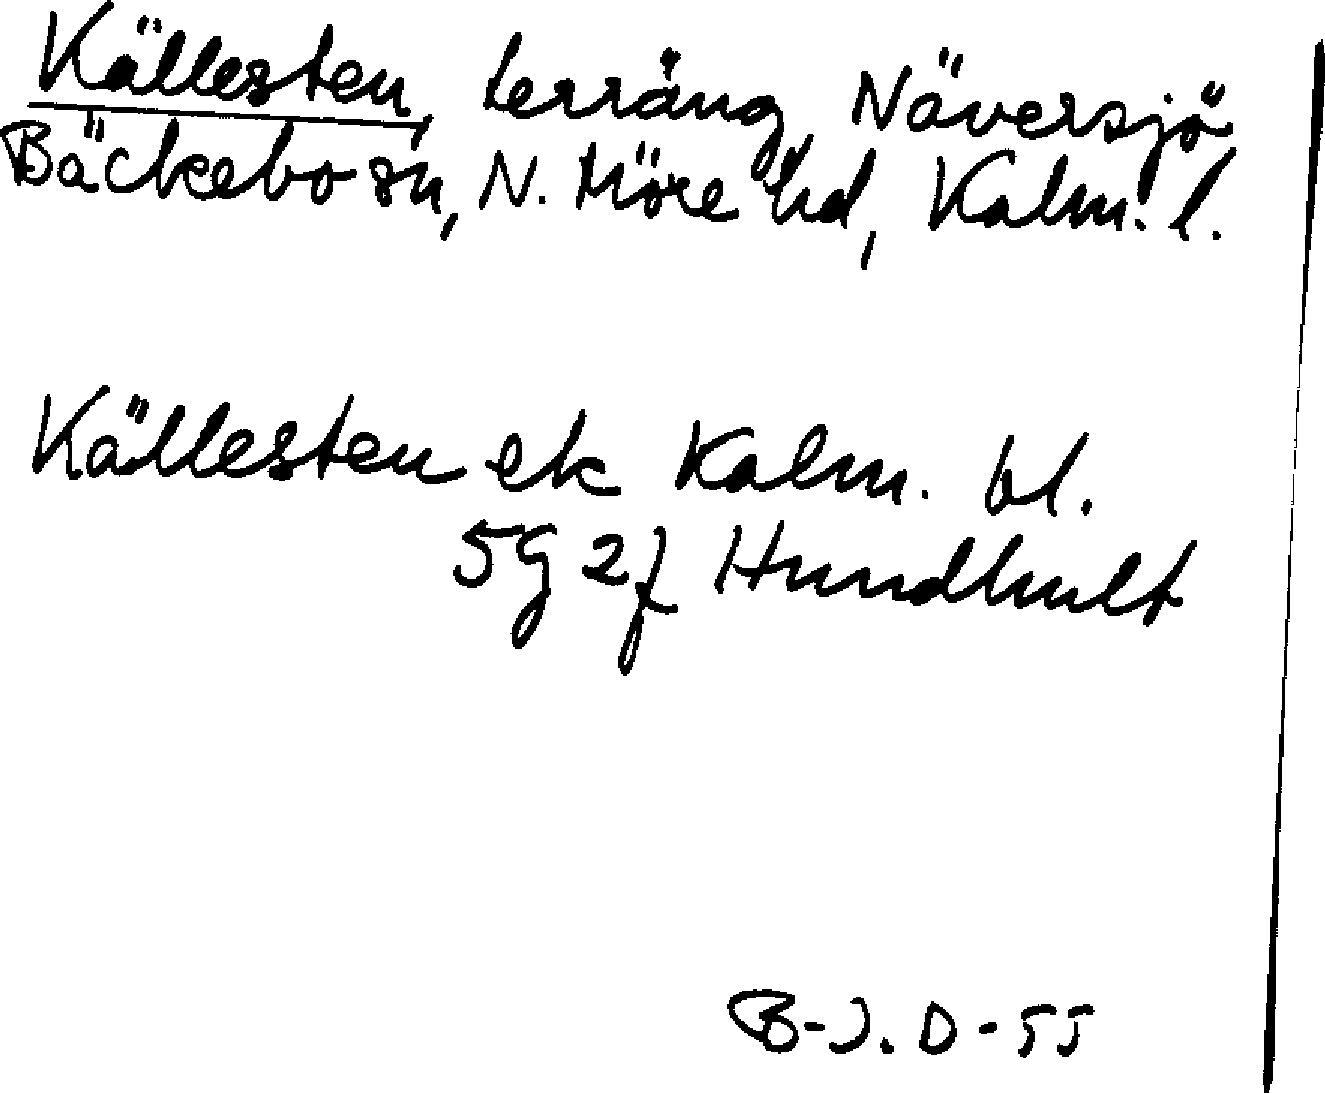 Källesten, terräng, Näversjö
Bäckebo sn, N. Möre hd, Kalm. l.
Källesten ek Kalm. bl.
5g 2f Hundhult
B-J. D-55